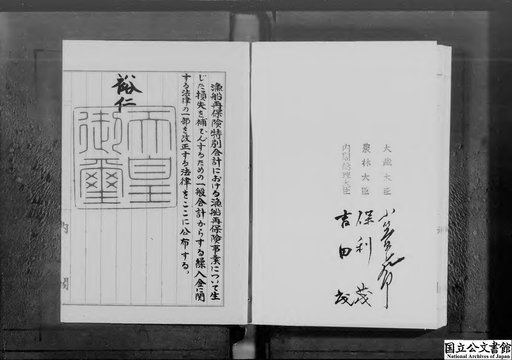 漁船再保険特別会計における漁船再保険事業について生
じた損失を補てんするための一般会計からする繰入金に関
する法律の一部を改正する法律をここに公布する。
裕仁
天皇
御璽
大蔵大臣
農林大臣
内閣総理大臣
保利茂
吉田茂
国立公文書館
National Archives of Japan